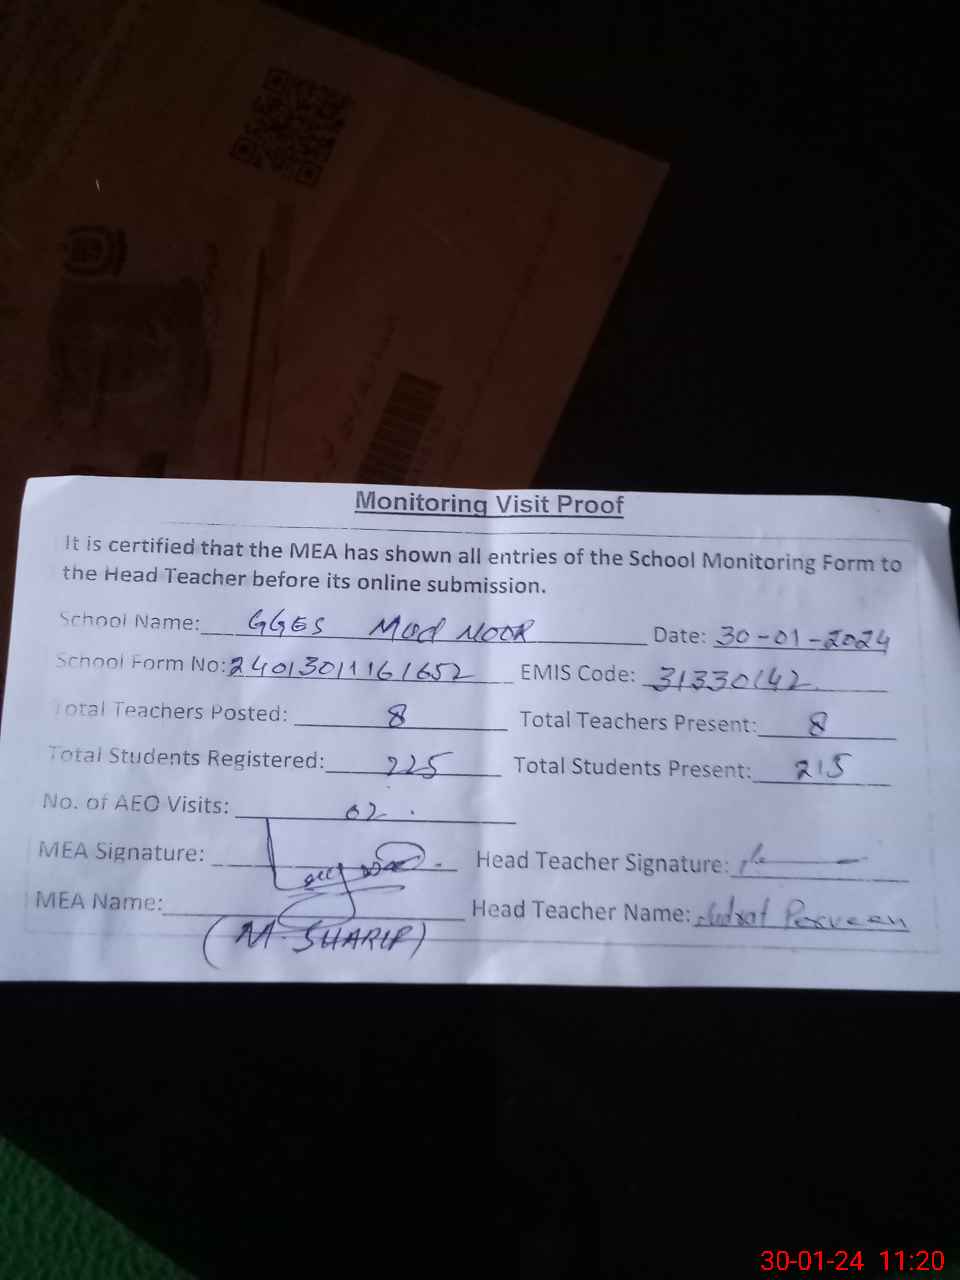 Monitoring Visit Proof
It is certified that the MEA has shown all entries of the School Monitoring Form to
the Head Teacher before its online submission.
School Name: GGES Mod NOOR Date: 30-01-2024
School Form No: 24013011161652 EMIS Code: 31330142
Total Teachers Posted: 8 Total Teachers Present: 8
Total Students Registered: 225 Total Students Present: 215
No. of AEO Visits: 02
MEA Signature: Head Teacher Signature:
MEA Name: Head Teacher Name: Parveen
(M. SHARIF)
30-01-24 11:20